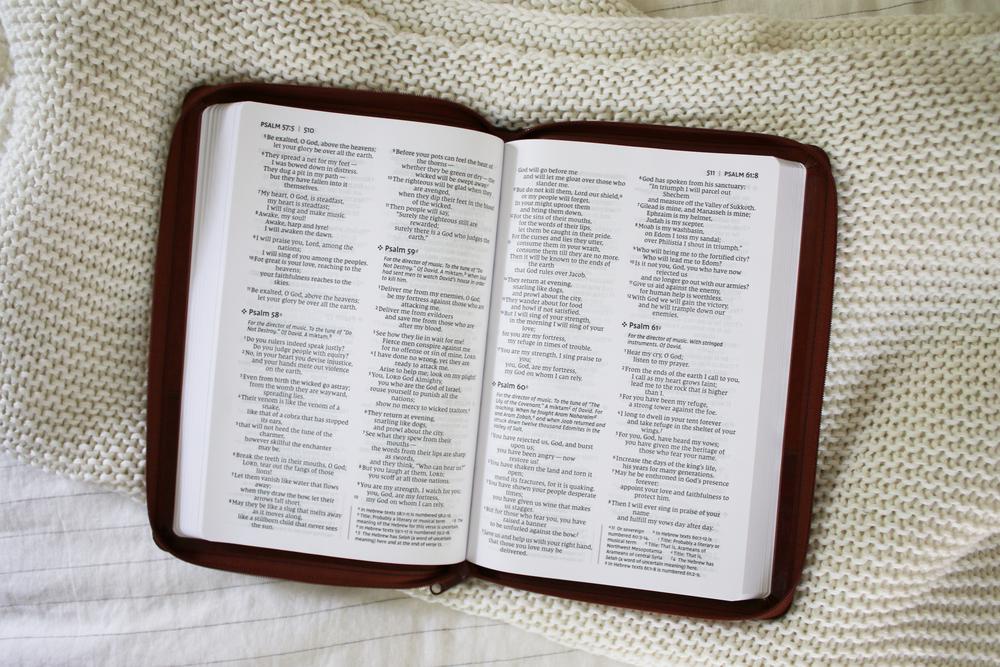 PSALM 57:5 | 510
5Be exalted, O God, above the heavens;
let your glory be over all the earth.
6They spread a net for my feet —
I was bowed down in distress.
They dug a pit in my path —
but they have fallen into it
themselves.
7My heart, O God, is steadfast,
my heart is steadfast;
I will sing and make music.
8Awake, my soul!
Awake, harp and lyre!
I will awaken the dawn.
9I will praise you, Lord, among the
nations;
I will sing of you among the peoples.
10For great is your love, reaching to the
heavens;
your faithfulness reaches to the
skies.
11Be exalted, O God, above the heavens;
let your glory be over all the earth.
Psalm 58
For the director of music. To the tune of "Do
Not Destroy." Of David. A miktam.
1Do you rulers indeed speak justly?
Do you judge people with equity?
2No, in your heart you devise injustice,
and your hands mete out violence
on the earth.
3Even from birth the wicked go astray;
from the womb they are wayward,
spreading lies.
4Their venom is like the venom of a
snake,
like that of a cobra that has stopped
its ears,
5that will not heed the tune of the
charmer,
however skillful the enchanter
may be.
6Break the teeth in their mouths, O God;
LORD, tear out the fangs of those
lions!
7Let them vanish like water that flows
away;
when they draw the bow, let their
arrows fall short.
8May they be like a slug that melts away
as it moves along,
like a stillborn child that never sees
the sun.
9Before your pots can feel the heat of
the thorns —
whether they be green or dry — the
wicked will be swept away.
10The righteous will be glad when they
are avenged,
when they dip their feet in the blood
of the wicked.
11Then people will say,
"Surely the righteous still are
rewarded;
surely there is a God who judges the
earth."
Psalm 59
For the director of music. To the tune of "Do
Not Destroy." Of David. A miktam. When Saul
had sent men to watch David's house in order
to kill him.
1Deliver me from my enemies, O God;
be my fortress against those who are
attacking me.
2Deliver me from evildoers
and save me from those who are
after my blood.
3See how they lie in wait for me!
Fierce men conspire against me
for no offense or sin of mine, LORD.
4I have done no wrong, yet they are
ready to attack me.
Arise to help me; look on my plight!
5You, LORD God Almighty,
you who are the God of Israel,
rouse yourself to punish all the
nations;
show no mercy to wicked traitors.
6They return at evening,
snarling like dogs,
and prowl about the city.
7See what they spew from their
mouths —
the words from their lips are sharp
as swords,
and they think, "Who can hear us?"
8But you laugh at them, LORD;
you scoff at all those nations.
9You are my strength, I watch for you;
you, God, are my fortress,
10my God on whom I can rely.
In Hebrew texts 58:1-11 is numbered 58:2-12.
Title: Probably a literary or musical term
The meaning of the Hebrew for this verse is uncertain.
In Hebrew texts 59:1-17 is numbered 59:2-18.
The Hebrew has Selah (a word of uncertain
meaning) here and at the end of verse 13.
511 | PSALM 61:8
God will go before me
and will let me gloat over those who
slander me.
11But do not kill them, Lord our shield,
or my people will forget.
In your might uproot them
and bring them down.
12For the sins of their mouths,
for the words of their lips,
let them be caught in their pride.
For the curses and lies they utter,
13consume them in your wrath,
consume them till they are no more.
Then it will be known to the ends of
the earth
that God rules over Jacob.
14They return at evening,
snarling like dogs,
and prowl about the city.
15They wander about for food
and howl if not satisfied.
16But I will sing of your strength,
in the morning I will sing of your
love;
for you are my fortress,
my refuge in times of trouble.
17You are my strength, I sing praise to
you;
you, God, are my fortress,
my God on whom I can rely.
Psalm 60
For the director of music. To the tune of "The
Lily of the Covenant." A miktam of David. For
teaching. When he fought Aram Naharaim
and Aram Zobah, and when Joab returned and
struck down twelve thousand Edomites in the
Valley of Salt.
1You have rejected us, God, and burst
upon us;
you have been angry — now
restore us!
2You have shaken the land and torn it
open;
mend its fractures, for it is quaking.
3You have shown your people desperate
times;
you have given us wine that makes
us stagger.
4But for those who fear you, you have
raised a banner
to be unfurled against the bow.
5Save us and help us with your right hand,
that those you love may be
delivered.
6God has spoken from his sanctuary:
"In triumph I will parcel out
Shechem
and measure off the Valley of Sukkoth.
7Gilead is mine, and Manasseh is mine;
Ephraim is my helmet,
Judah is my scepter.
8Moab is my washbasin,
on Edom I toss my sandal;
over Philistia I shout in triumph."
9Who will bring me to the fortified city?
Who will lead me to Edom?
10Is it not you, God, you who have now
rejected us
and no longer go out with our armies?
11Give us aid against the enemy,
for human help is worthless.
12With God we will gain the victory,
and he will trample down our
enemies.
Psalm 61
For the director of music. With stringed
instruments. Of David.
1Hear my cry, O God;
listen to my prayer.
2From the ends of the earth I call to you,
I call as my heart grows faint;
lead me to the rock that is higher
than I.
3For you have been my refuge,
a strong tower against the foe.
4I long to dwell in your tent forever
and take refuge in the shelter of your
wings.
5For you, God, have heard my vows;
you have given me the heritage of
those who fear your name.
6Increase the days of the king's life,
his years for many generations.
7May he be enthroned in God's presence
forever;
appoint your love and faithfulness to
protect him.
8Then I will ever sing in praise of your
name
and fulfill my vows day after day.
11 Or sovereign
In Hebrew texts 60:1-12 is
numbered 60:3-14.
Title: Probably a literary or
musical term
Title: That is, Arameans of
Northwest Mesopotamia
Title: That is,
Arameans of central Syria
The Hebrew has
Selah (a word of uncertain meaning) here.
In Hebrew texts 61:1-8 is numbered 61:2-9.